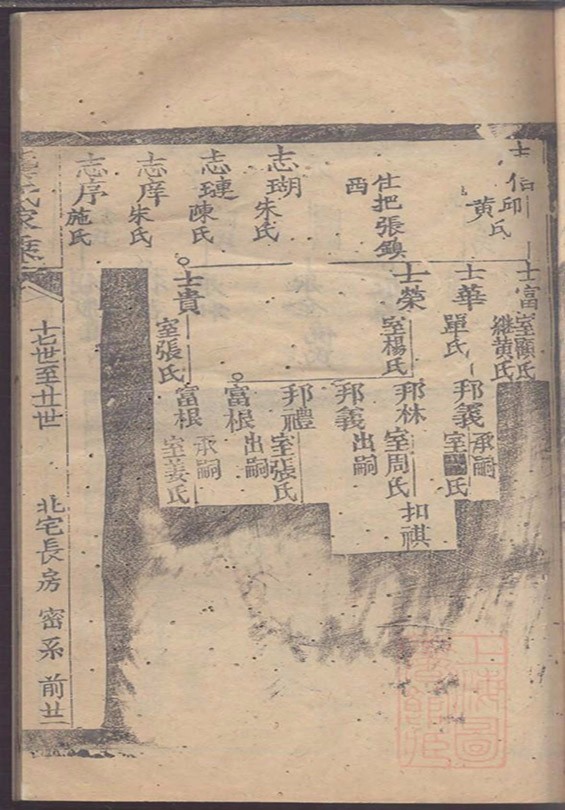 伯邱氏
黄
仕把張鎮
酉
志瑚朱氏
志璉陳氏
志庠朱氏
志序施氏
士富室顧氏
繼黄氏
士華單氏
士榮室楊氏
士貴室張氏
邦義承嗣
室 氏
邦林室周氏
邦義出嗣
邦禮室張氏
富根出嗣
富根承嗣
室姜氏
扣祺
十七世至廿世
北宅長房 密系 前廿